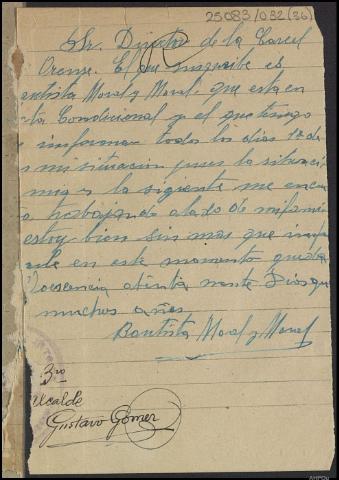 25083/032(36)
Sr. Director de la Carcel
Orense. El que suscribe es
autista Moral y Moral que esta en
ta Condicional y el que tengo
informar todos los dias 1º de
mi situacion pues la situaci
muy la sigiente me encu
trabajando alado de mi fami
estoy bien sin mas que
en este momento queda
atenta mente Dios gu
muchos años
Bautista Moral y Moral
Bro
Alcalde
Gustavo Gomez
AHPOu